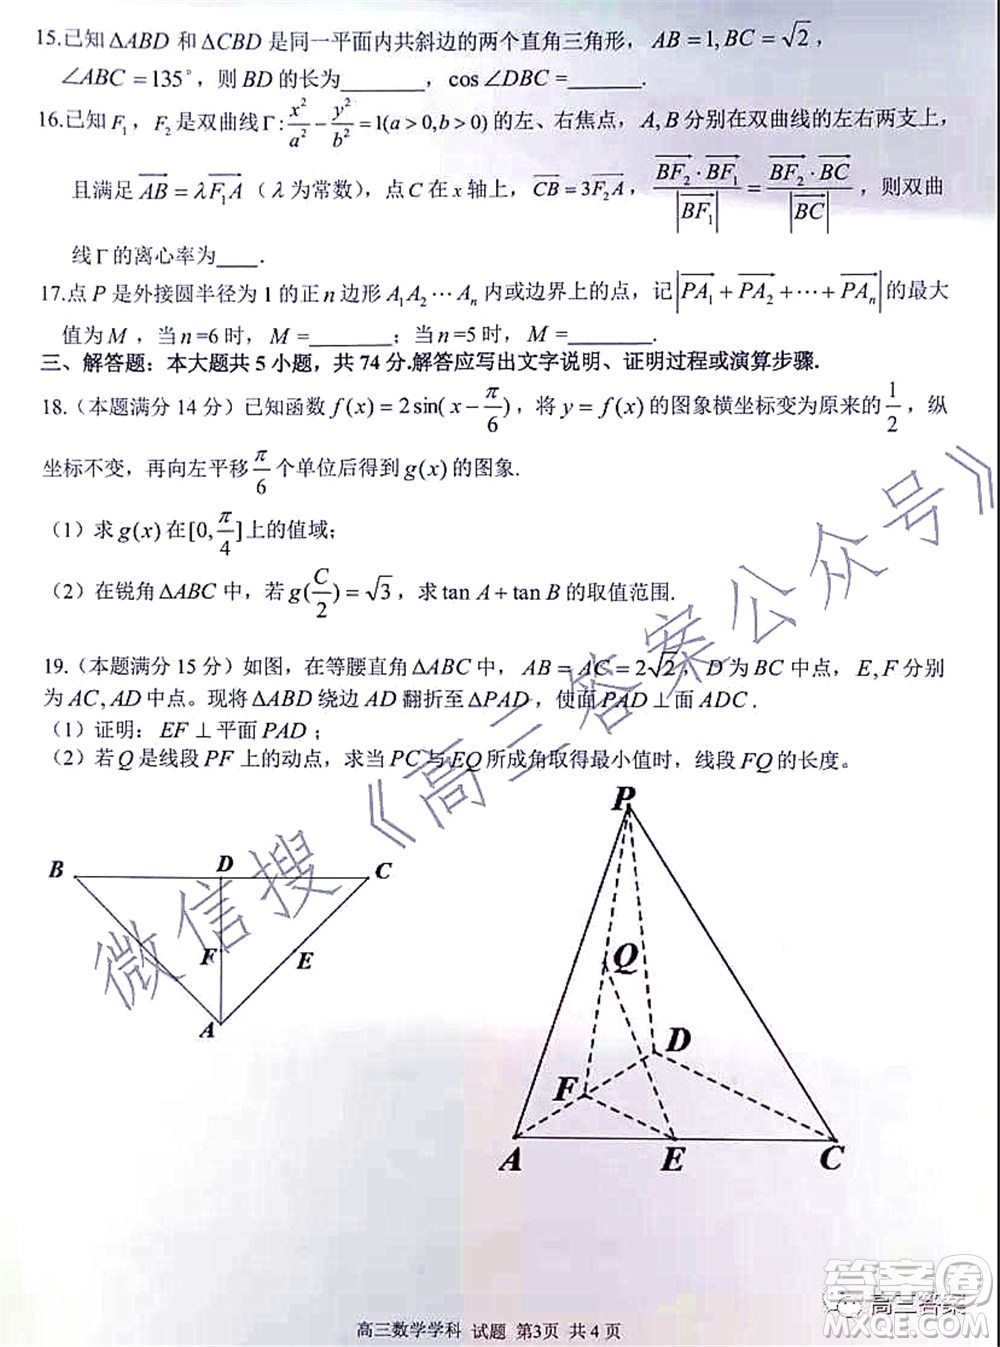 15.已知 ΔABD 和 ΔCBD 是同一平面内共斜边的两个直角三角形， AB = 1, BC = √2 ，
∠ABC = 135°，则 BD 的长为_______，cos∠DBC =_______.
16.已知 F₁，F₂ 是双曲线 Γ: x²/a² − y²/b² = 1(a > 0, b > 0) 的左、右焦点，A, B 分别在双曲线的左右两支上，
且满足 \overrightarrow{AB} = λ\overrightarrow{F₁A}（ λ 为常数），点 C 在 x 轴上， \overrightarrow{CB} = 3\overrightarrow{F₂A}， \frac{\overrightarrow{BF₂}·\overrightarrow{BF₁}}{|\overrightarrow{BF₁}|} = \frac{\overrightarrow{BF₂}·\overrightarrow{BC}}{|\overrightarrow{BC}|} ，则双曲
线 Γ 的离心率为____.
17.点 P 是外接圆半径为 1 的正 n 边形 A₁A₂⋯Aₙ 内或边界上的点，记 |\overrightarrow{PA₁} + \overrightarrow{PA₂} + ⋯ + \overrightarrow{PAₙ}| 的最大
值为 M，当 n =6 时， M =________；当 n =5 时， M =________.
三、解答题：本大题共 5 小题，共 74 分.解答应写出文字说明、证明过程或演算步骤.
18.（本题满分 14 分）已知函数 f(x) = 2sin( x − π/6 )，将 y = f(x) 的图象横坐标变为原来的 1/2 ，纵
坐标不变，再向左平移 π/6 个单位后得到 g(x) 的图象.
（1）求 g(x) 在 [0, π/4] 上的值域；
（2）在锐角 ΔABC 中，若 g(C/2) = √3 ，求 tan A + tan B 的取值范围.
19.（本题满分 15 分）如图，在等腰直角 ΔABC 中， AB = AC = 2√2， D 为 BC 中点， E, F 分别
为 AC, AD 中点。现将 ΔABD 绕边 AD 翻折至 ΔPAD ，使面 PAD ⊥ 面 ADC .
（1）证明： EF ⊥ 平面 PAD ；
（2）若 Q 是线段 PF 上的动点，求当 PC 与 EQ 所成角取得最小值时，线段 FQ 的长度。
B D C
F E
A
P
Q
D
F
A E C
微信搜《高三答案公众号》
答案卷
高三答案
高三数学学科 试题 第3页 共 4 页